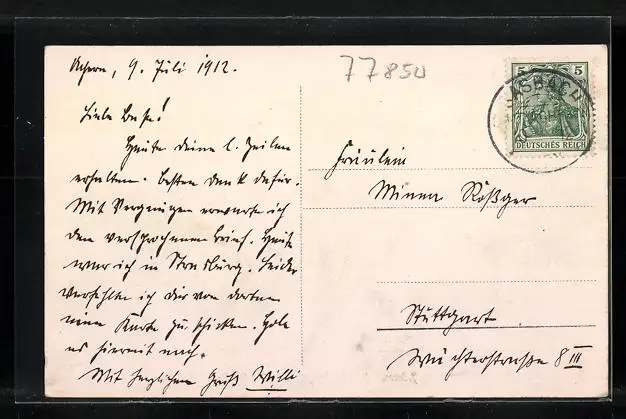 Achern, 9. Juli 1912.
Liebe Base!
Heute deine l. Zeilen
erhalten. Besten Dank dafür.
Mit Vergnügen erwarte ich
den versprochenen Brief. Heute
war ich in Strasburg. Leider
verfehlte ich dir von dorten
eine Karte zu schicken. Hole
es hiermit nach.
Mit herzlichem Gruß Willi
77850
5 5
DEUTSCHES REICH
Fräulein
Minna Rößger
Stuttgart
Wächterstraße 8 III